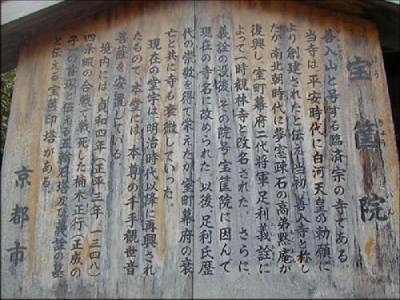 宝筐院
善入山と号する臨済宗の寺である。
当寺は、平安時代に白河天皇の勅願に
より創建されたと伝え、当初、善入寺と称し
たが、南北朝時代に夢窓疎石の高弟黙庵が
復興し、室町幕府二代将軍足利義詮に
よって一時観林寺と改名された。さらに、
義詮の没後、その院号宝筐院に因んで
現在の寺名に改められた。以後、足利氏歴
代の崇敬を得て栄えたが、室町幕府の衰
亡と共に寺も衰微していった。
現在の堂宇は、明治時代以降に再興され
たもので、本堂には、本尊の千手観世音
菩薩を安置している。
境内には、貞和四年(正平三年・一三四八)
四条畷の合戦で戦死した楠木正行(正成の
子)の首塚と伝える五輪石塔及び義詮の墓
と伝える宝筐印塔がある。
京都市